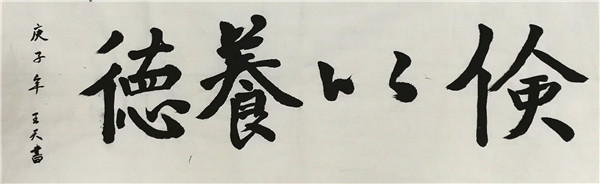 倹以養徳
庚子年 王天書